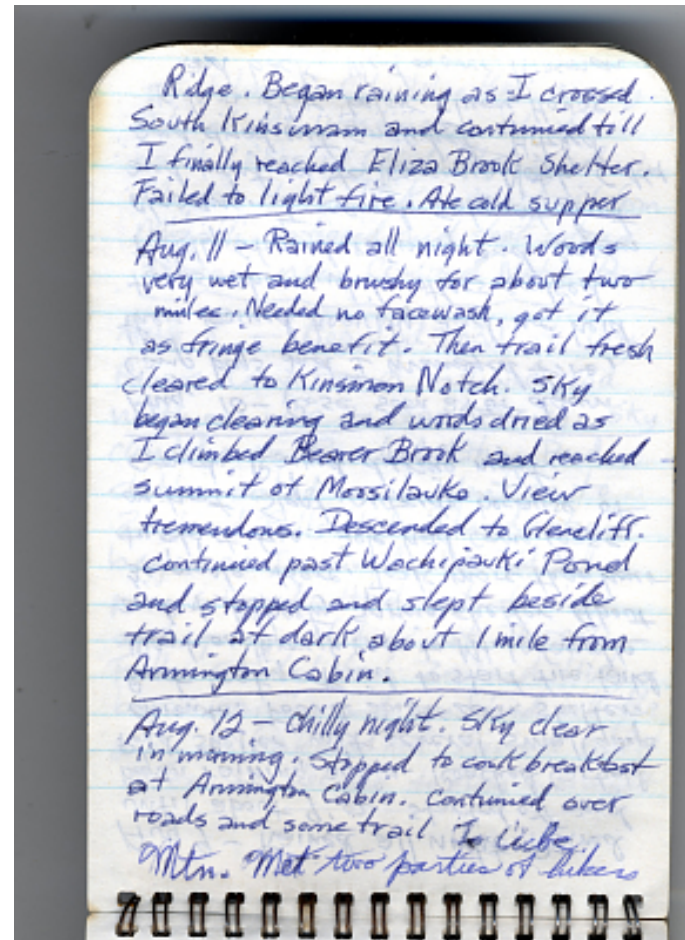 Ridge. Began raining as I crossed
South Kinsmam and contunied till
I finally reached Eliza Brook Shelter.
Failed to light fire. Ate cold supper
Aug. 11 - Rained all night. Woods
very wet and brushy for about two
miles. Needed no facewash, got it
as fringe benefit. Then trail fresh
cleared to Kinsman Notch. Sky
began clearing and woods dried as
I climbed Beaver Brook and reached
summit of Moosilauke. View
tremendous. Descended to Glencliff.
continued past Wachipauki Pond
and stopped and slept beside
trail at dark about 1 mile from
Armington Cabin.
Aug. 12 - Chilly night. Sky clear
in morning. Stopped to cook breakfast
at Armington Cabin. Contunied over
roads and some trail to Cube
Mtn. Met two parties of hikers